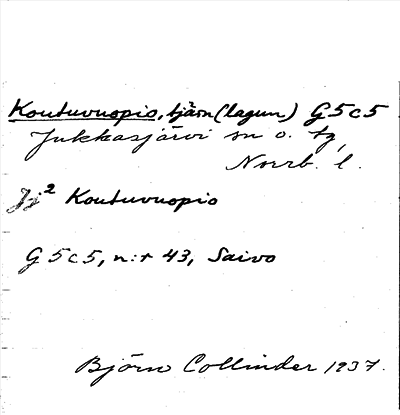 Koutuvuopio, tjärn (lagun) G5c5
Jukkasjärvi sn o. tg,
Norrb. l.
Jj² Koutuvuopio
G5c5, n:r 43, Saivo
Björn Collinder 1937.